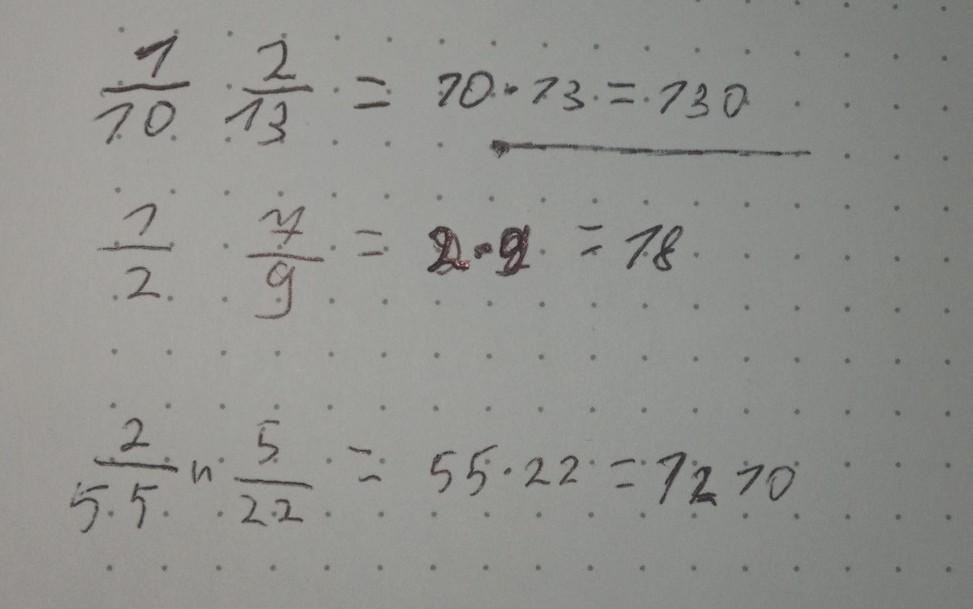 1/10 2/13 = 10·13 = 130
1/2 7/9 = 2·9 = 18
2/55 и 5/22 = 55·22 = 1210